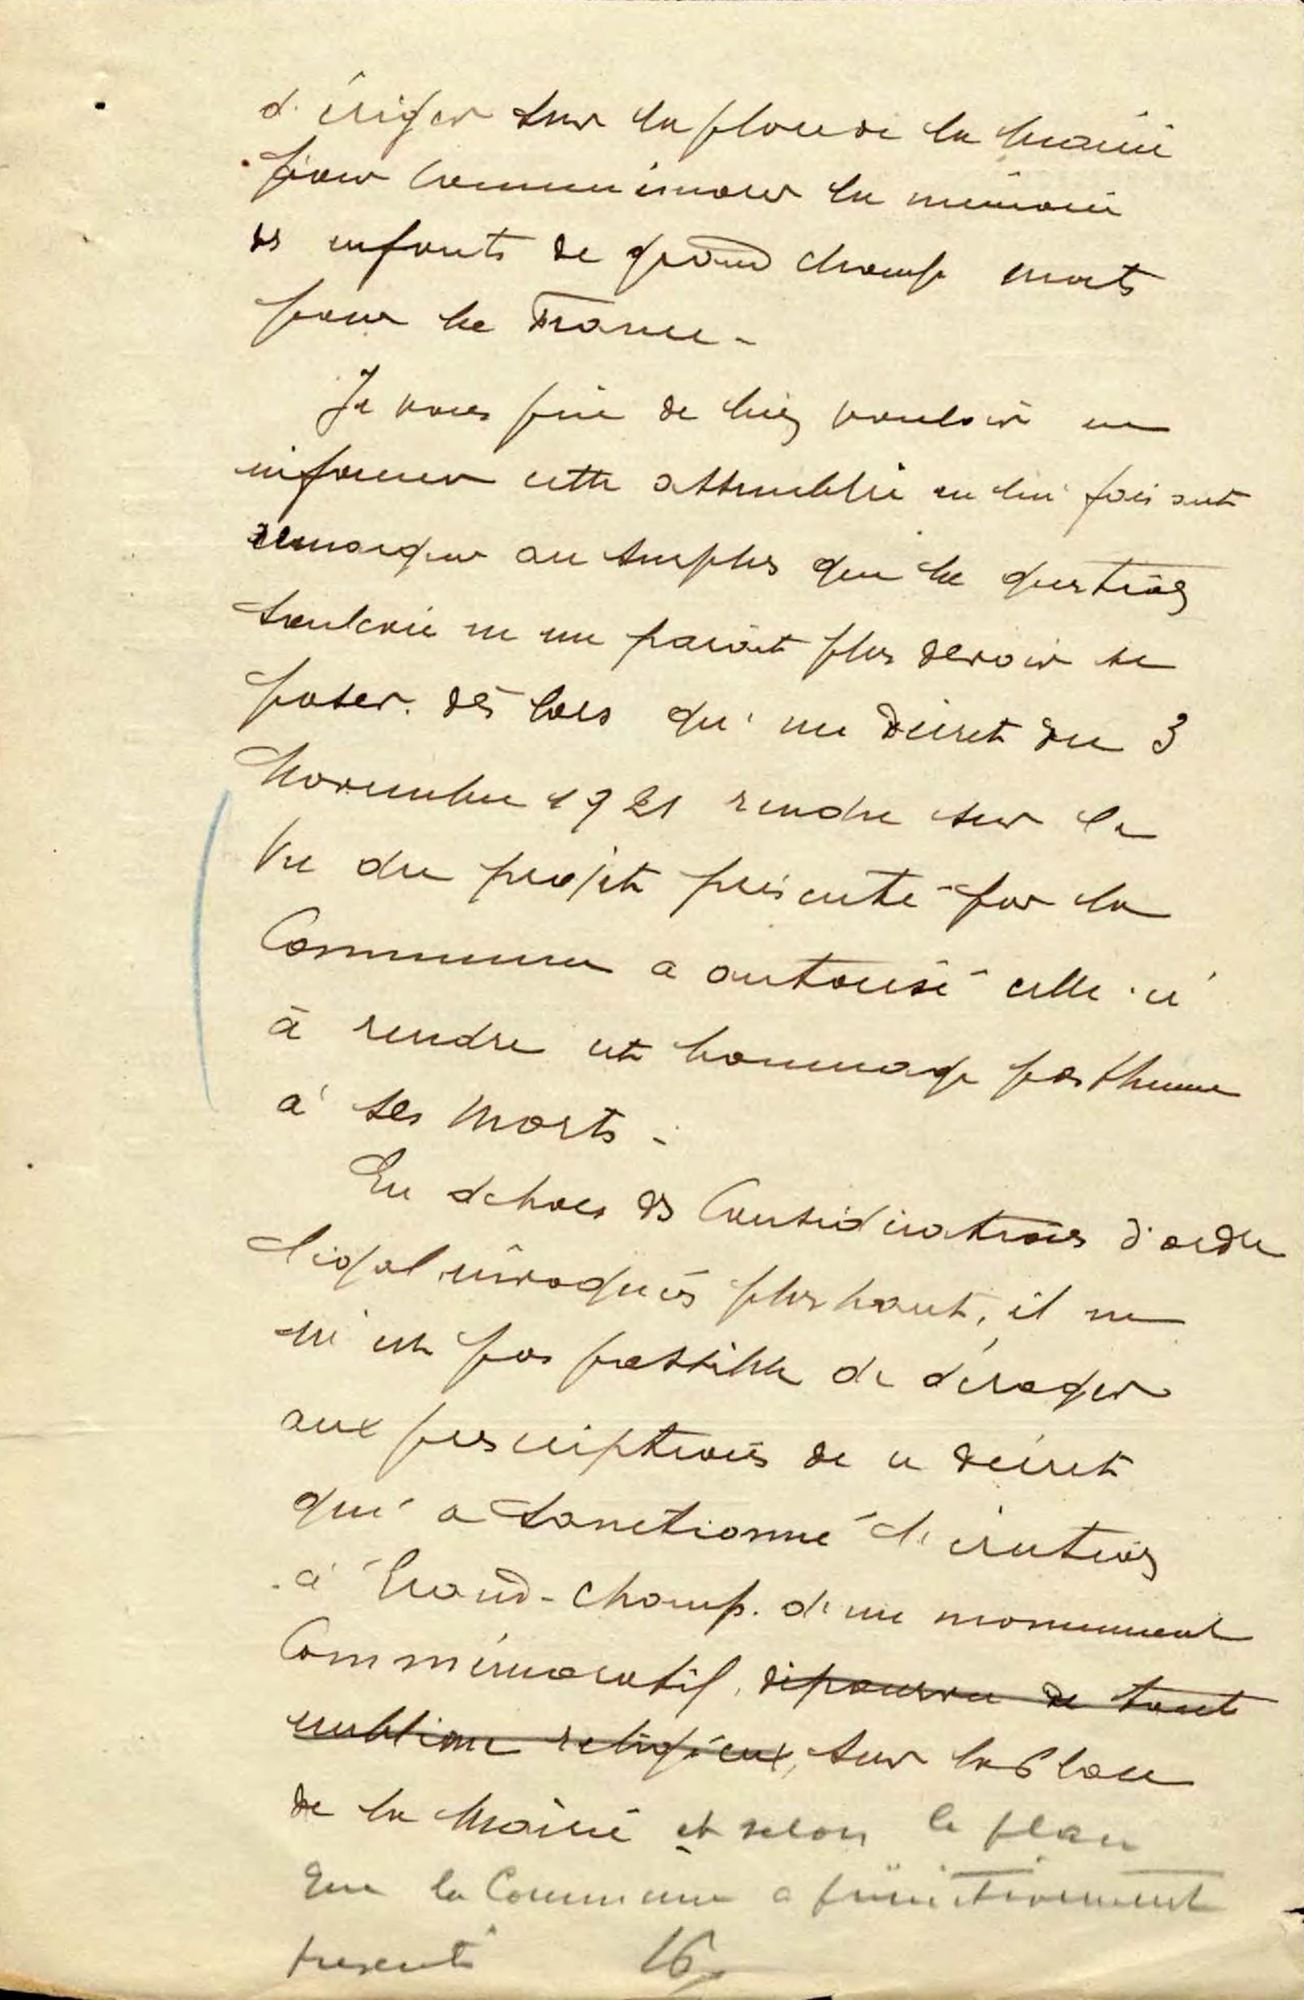 d'ériger sur la place de la Mairie
pour commémorer la mémoire
des enfants de grand champ morts
pour la France -
Je vous prie de bien vouloir en
informer cette assemblée en lui faisant
remarquer au surplus que la question
soulevée ne me parait plus devoir se
poser. dès lors qu'un décret du 3
Novembre 1921 rendu sur le
Vu du projet présenté par la
Commune a autorisé celle-ci
à rendre cet hommage posthume
à ses morts -
En dehors des Considérations d'ordre
légal invoquées plus haut, il ne
m'est pas possible de déroger
aux prescriptions de ce décret
qui a sanctionné l'érection
à Grand-Champ. d'un monument
Commémoratif, dépourvu de tout
emblème religieux, sur la Place
de la Mairie et selon le plan
que la Commune a primitivement
présenté 16